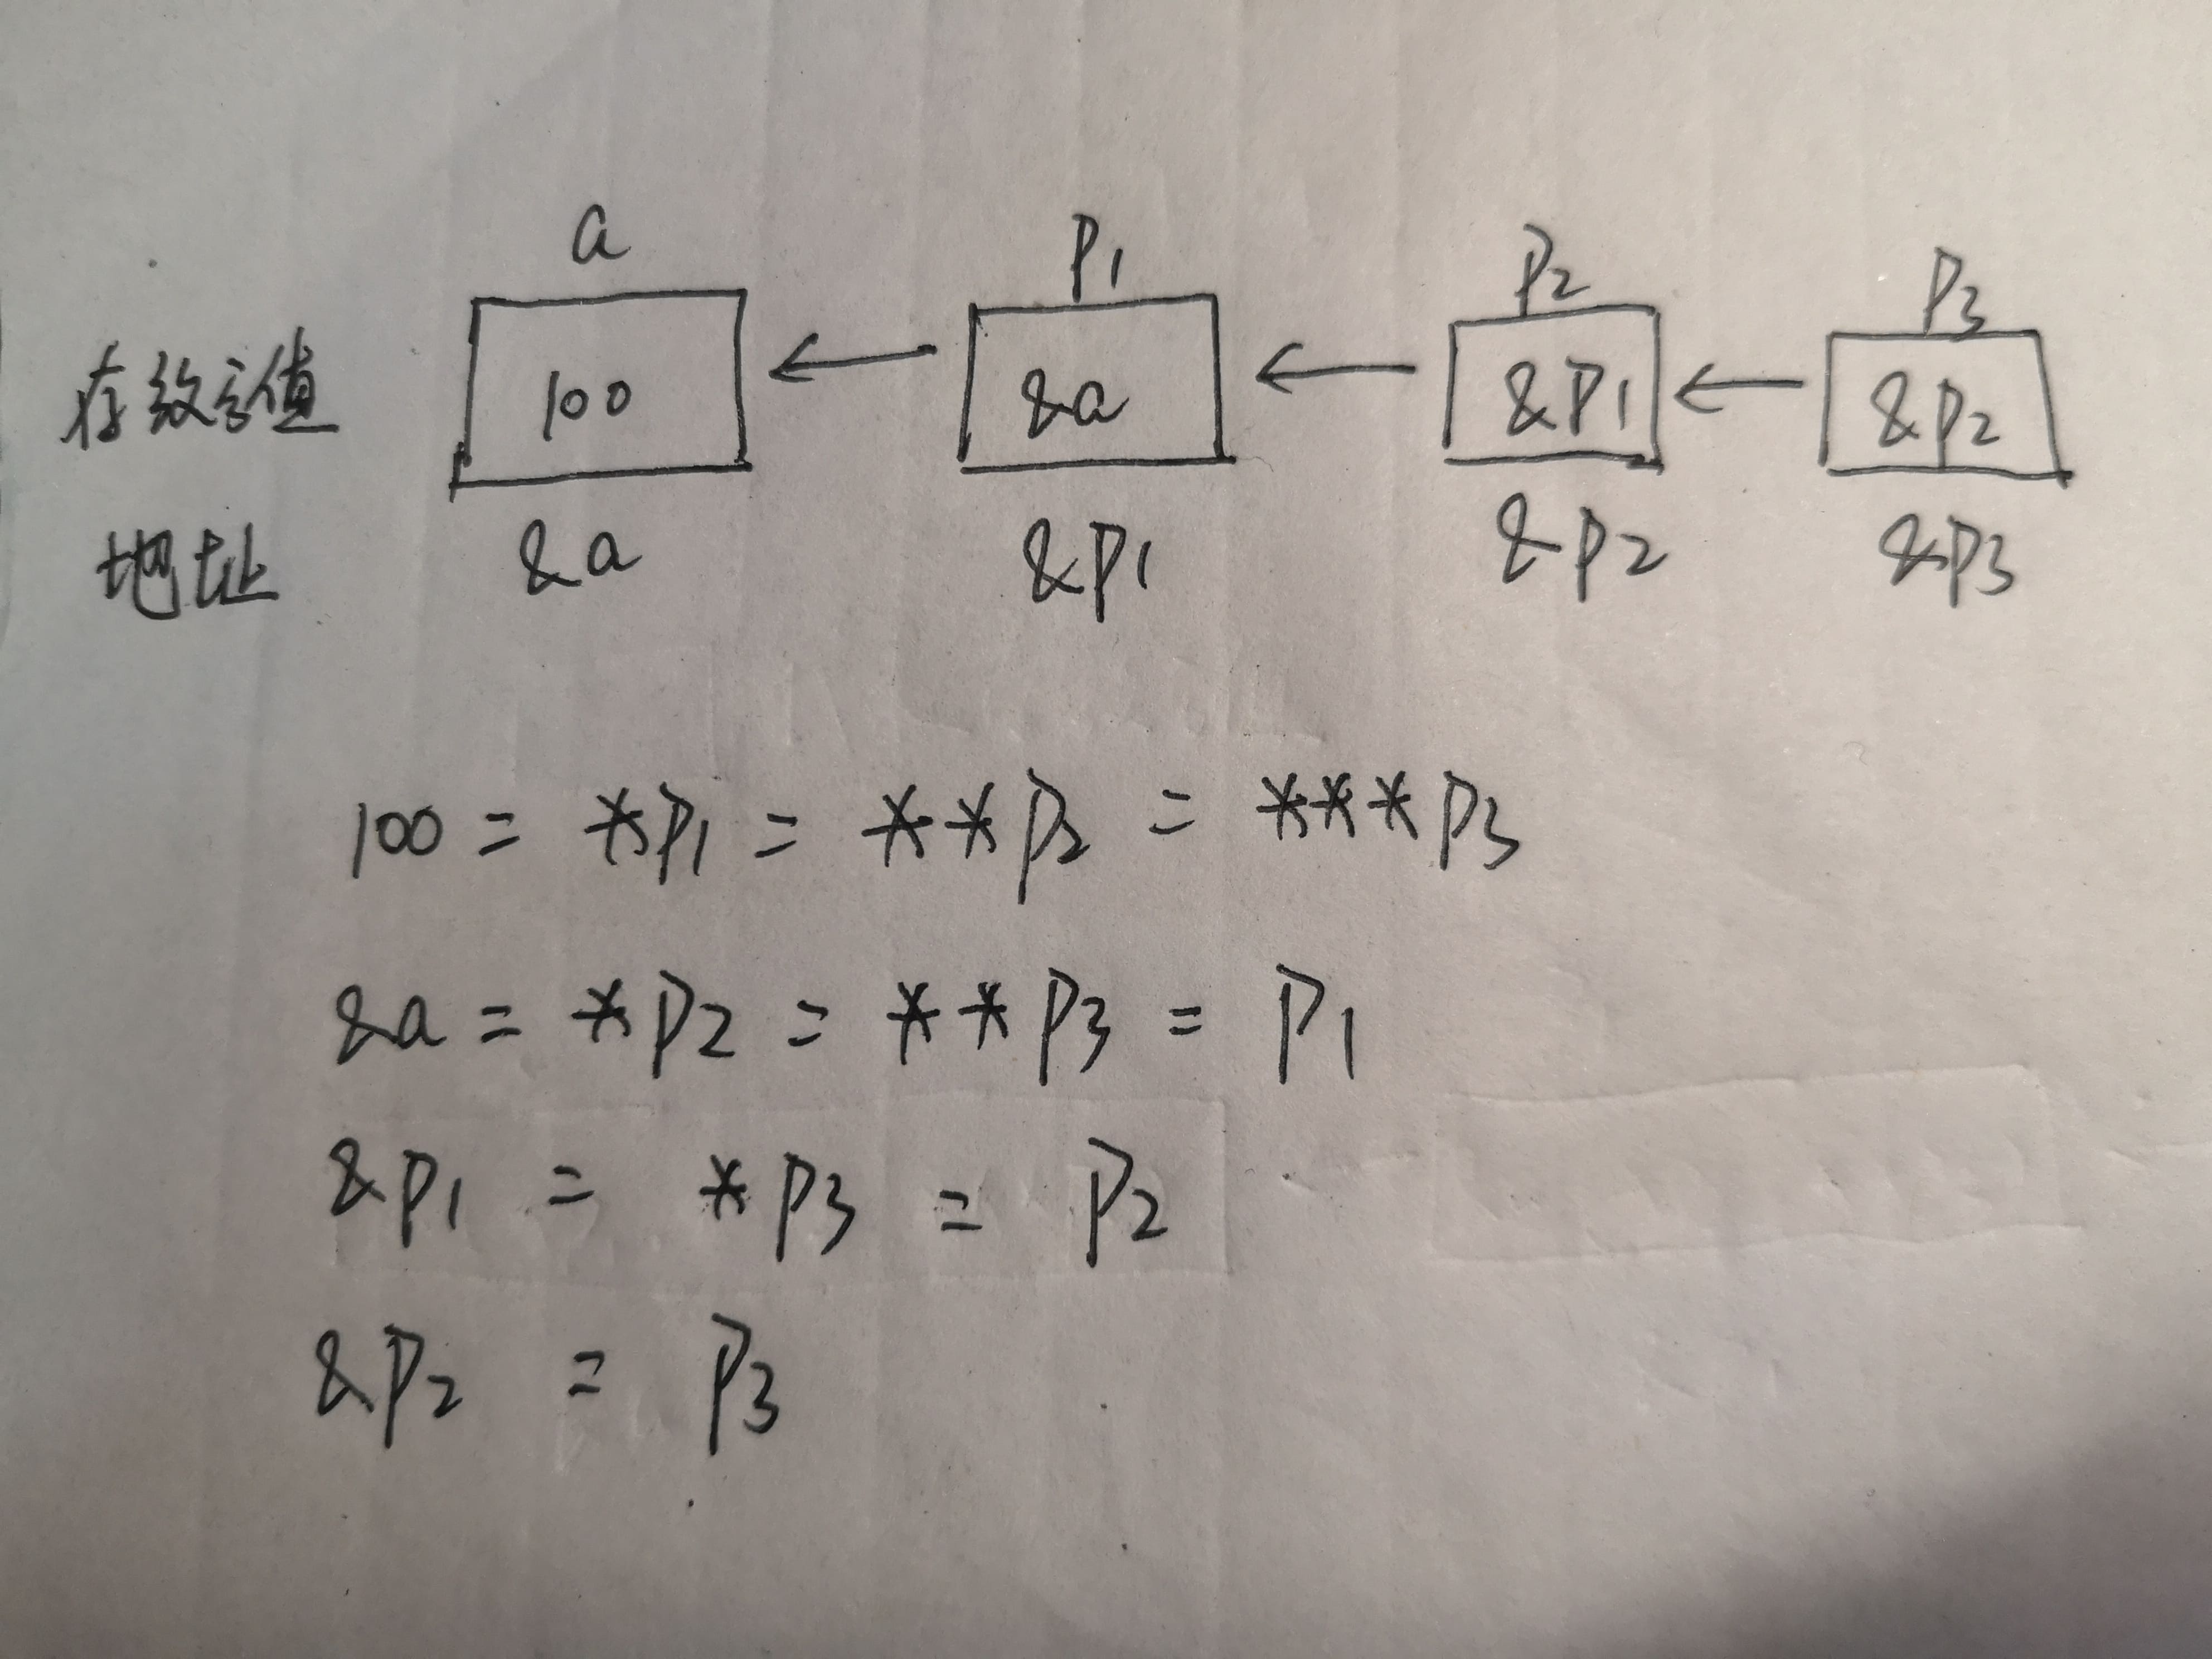 a P1 P2 P3
存放的值 100 &a &P1 &P2
地址 &a &P1 &P2 &P3
100 = *P1 = **P2 = ***P3
&a = *P2 = **P3 = P1
&P1 = *P3 = P2
&P2 = P3